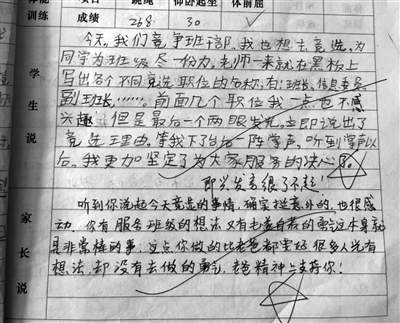 体能 项目 跳绳 仰卧起坐 体前屈
训练 成绩 268 30 ✓
学生说
今天，我们竞争班干部，我也想去竞选，为
同学为班级尽一份力。老师一来就在黑板上
写出各个不同竞选职位的名称，有：班长、信息委员、
副班长，……。前面几个职位我一点也不感
兴趣，但是最后一个两眼发光，立即说出了
竞选理由。等我下了台后一阵掌声，听到掌声以
后，我更加坚定了为大家服务的决心了。
即兴发言很了不起！
家长说
听到你说起今天竞选的事情，确实挺意外的，也很感
动，你有服务班级的想法又有毛遂自荐的勇气这本身就
是非常棒的事，这点你做的比爸爸都
很多人光有
想法，却没有去做的勇气，爸爸精神上支持你！